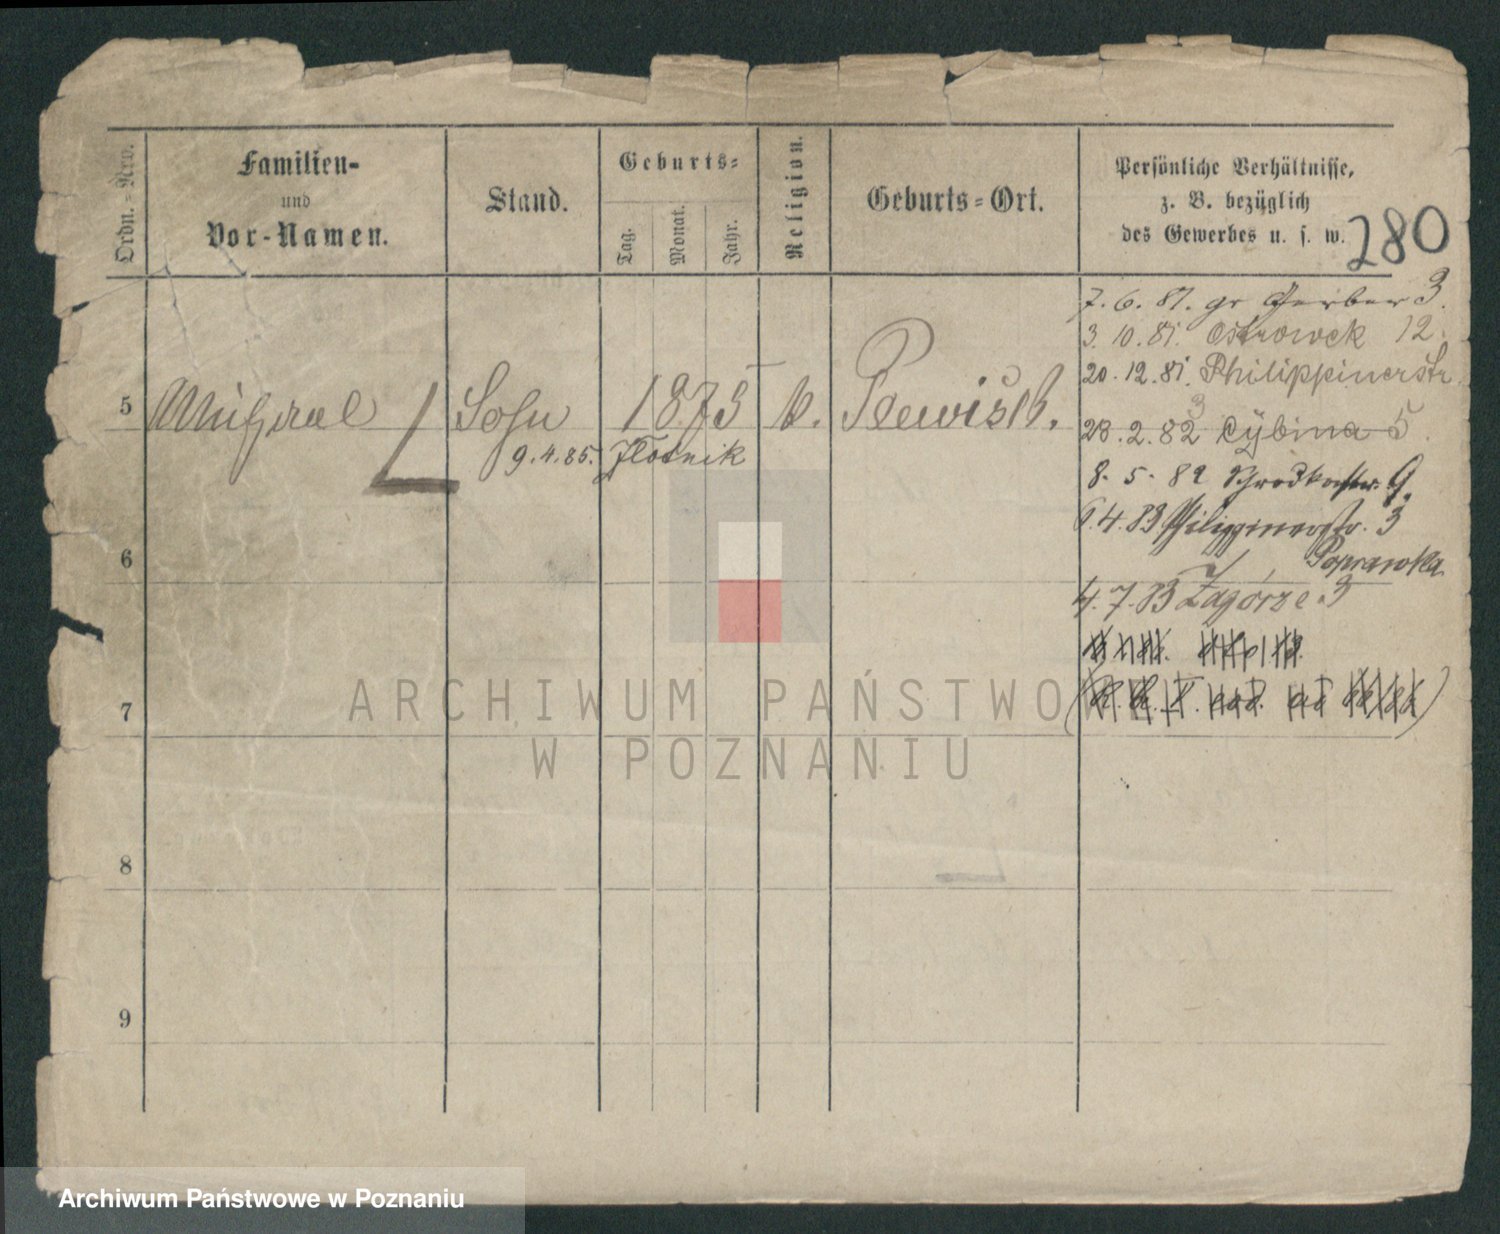 Ordn.-Nro.
Familien-
und
Vor-Namen.
Stand.
Geburts-
Tag.
Monat.
Jahr.
Religion.
Geburts-Ort.
Persönliche Verhältnisse,
z. B. bezüglich
des Gewerbes u. s. w.
280
7. 6. 81. gr Gerber 3.
3. 10. 81. Ostrowek 12.
20. 12. 81. Philippinerstr.
5 Michael Sohn 1875 k. Plewisk.
3
28. 2. 82 Cybina 5.
9. 4. 85.
8. 5. 82 Schrodkastr. 9.
6. 4. 83 Philippinerstr. 3
6
Poprawka
4. 7. 83 Zagórze 3
7
8
9
ARCHIWUM PAŃSTWOWE
W POZNANIU
Archiwum Państwowe w Poznaniu